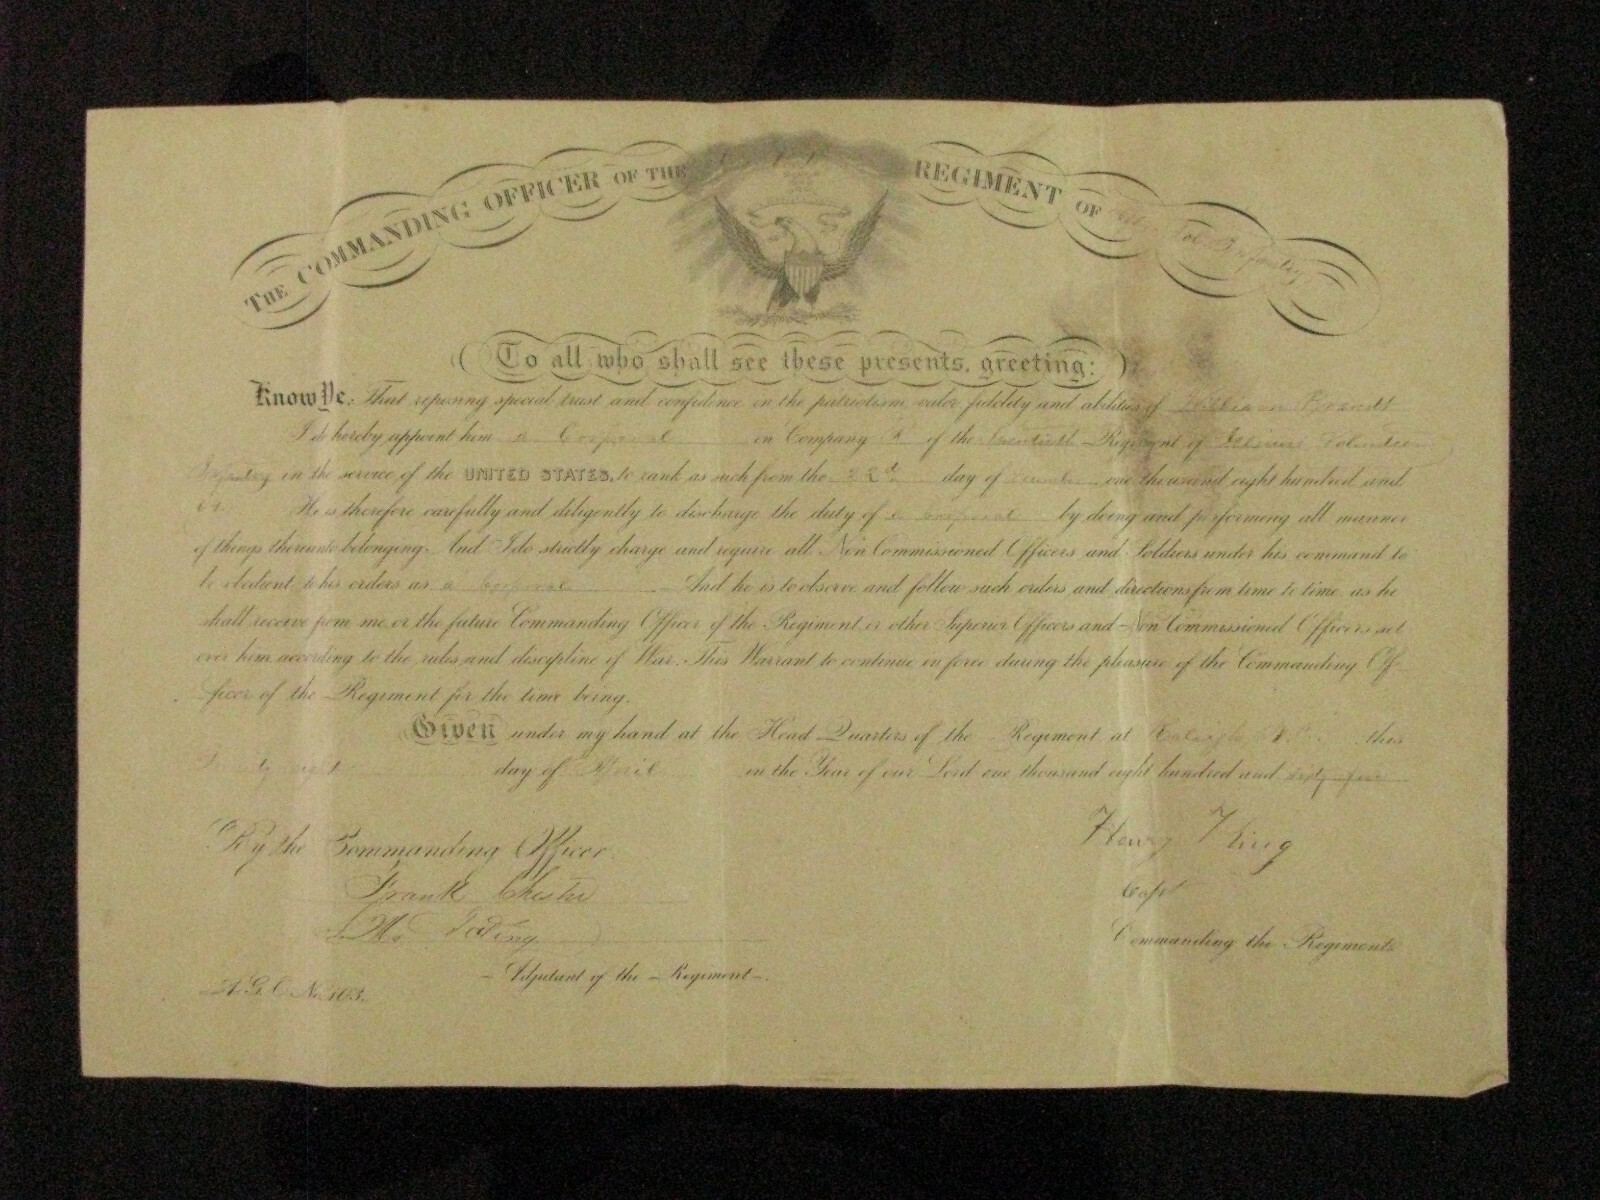 THE COMMANDING OFFICER OF THE REGIMENT OF Vol. Infantry
To all who shall see these presents, greeting:
Know Ye, That reposing special trust and confidence in the patriotism, valor, fidelity and abilities of William Brandt
I do hereby appoint him a Corporal in Company of the Regiment of Illinois Volunteer
Infantry in the service of the UNITED STATES, to rank as such from the day of one thousand eight hundred and
He is therefore carefully and diligently to discharge the duty of a Corporal by doing and performing all manner
of things thereunto belonging. And I do strictly charge and require all Non Commissioned Officers and Soldiers under his command to
be obedient to his orders as a Corporal And he is to observe and follow such orders and directions from time to time, as he
shall receive from me, or the future Commanding Officer of the Regiment or other Superior Officers and Non Commissioned Officers set
over him according to the rules and discipline of War. This Warrant to continue in force during the pleasure of the Commanding Of-
ficer of the Regiment for the time being.
Given under my hand at the Head Quarters of the Regiment at Raleigh N.C. this
Twenty eight day of April in the Year of our Lord one thousand eight hundred and sixty five
By the Commanding Officer.
Henry King
Frank Chester
Capt
Commanding the Regiment.
Adjutant of the Regiment.
A.G.O. No. 103.